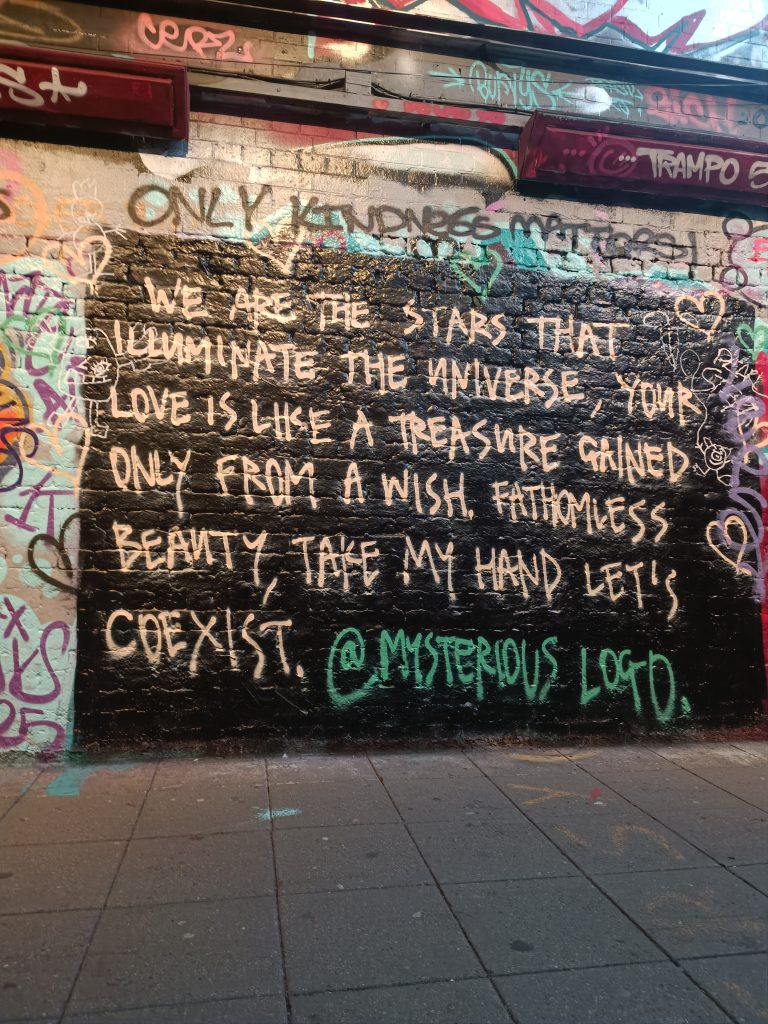 CERZ
BURTYS
TRAMPO S
ONLY KINDNESS MATTERS!
WE ARE THE STARS THAT
ILLUMINATE THE UNIVERSE, YOUR
LOVE IS LIKE A TREASURE GAINED
ONLY FROM A WISH. FATHOMLESS
BEAUTY, TAKE MY HAND LET'S
COEXIST.
@MYSTERIOUS LOGO.
25